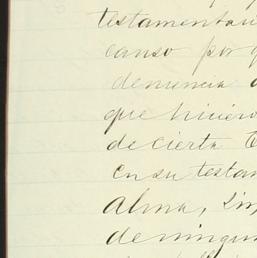 testamentari
causo por q
denuncia a
que hiciero
de cierta C
en su testam
alma, sin
de ningun